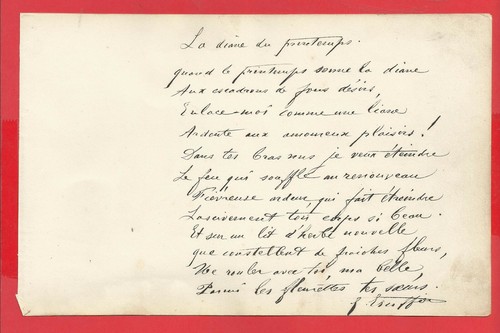 La diane du printemps.
quand le printemps sonne la diane
Aux escadrons de fous désirs,
Enlace-moi comme une liane
Ardente aux amoureux plaisirs!
Dans tes bras nus je veux éteindre
Le feu qui souffle au renouveau
Fiévreuse ardeur, qui fait étreindre
Lascivement ton corps si beau.
Et sur un lit d'herbe nouvelle
que constellent de fraiches fleurs,
Me rouler avec toi, ma belle,
Parmi les fleurettes tes sœurs.